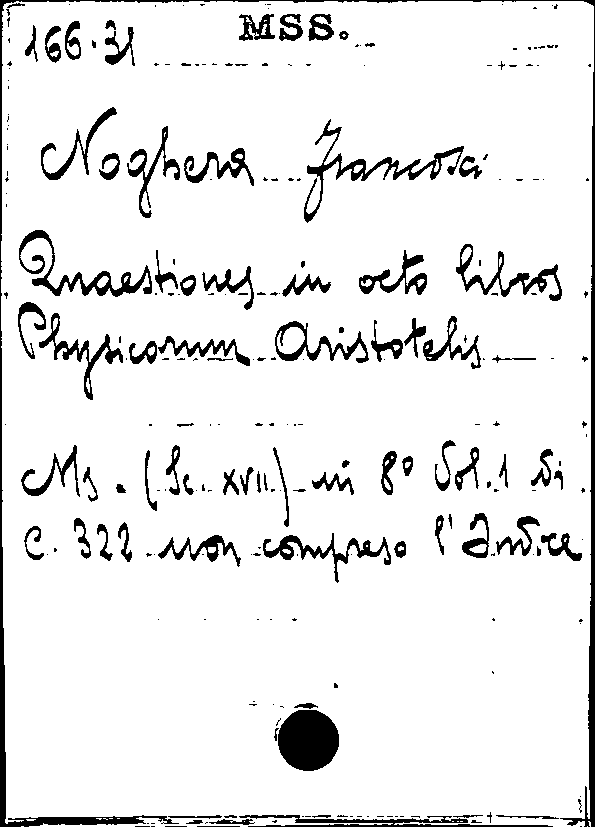 MSS.
166.31
Noghera Francisci
Quaestiones in octo libros
Physicorum Aristotelis
Ms. (Sc. XVII) in 8º Vol. 1 di
c. 322 non compreso l'Indice